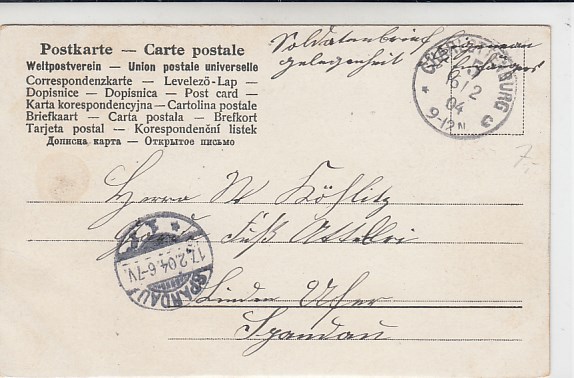 Postkarte — Carte postale
Weltpostverein — Union postale universelle
Correspondenzkarte — Levelező-Lap —
Dopisnice — Dopisnica — Post card —
Karta korespondencyjna — Cartolina postale
Briefkaart — Carta postala — Brefkort
Tarjeta postal — Korespondenční listek
Дописна карта — Открытое письмо
Soldatenbrief Eigene
gelegenheit
CHARLOTTENBURG
16/2
04
9-12N
7,-
Herrn W Köhlitz
Fuß
SPANDAU
17.2.04.6-7V.
Linden Ufer
Spandau